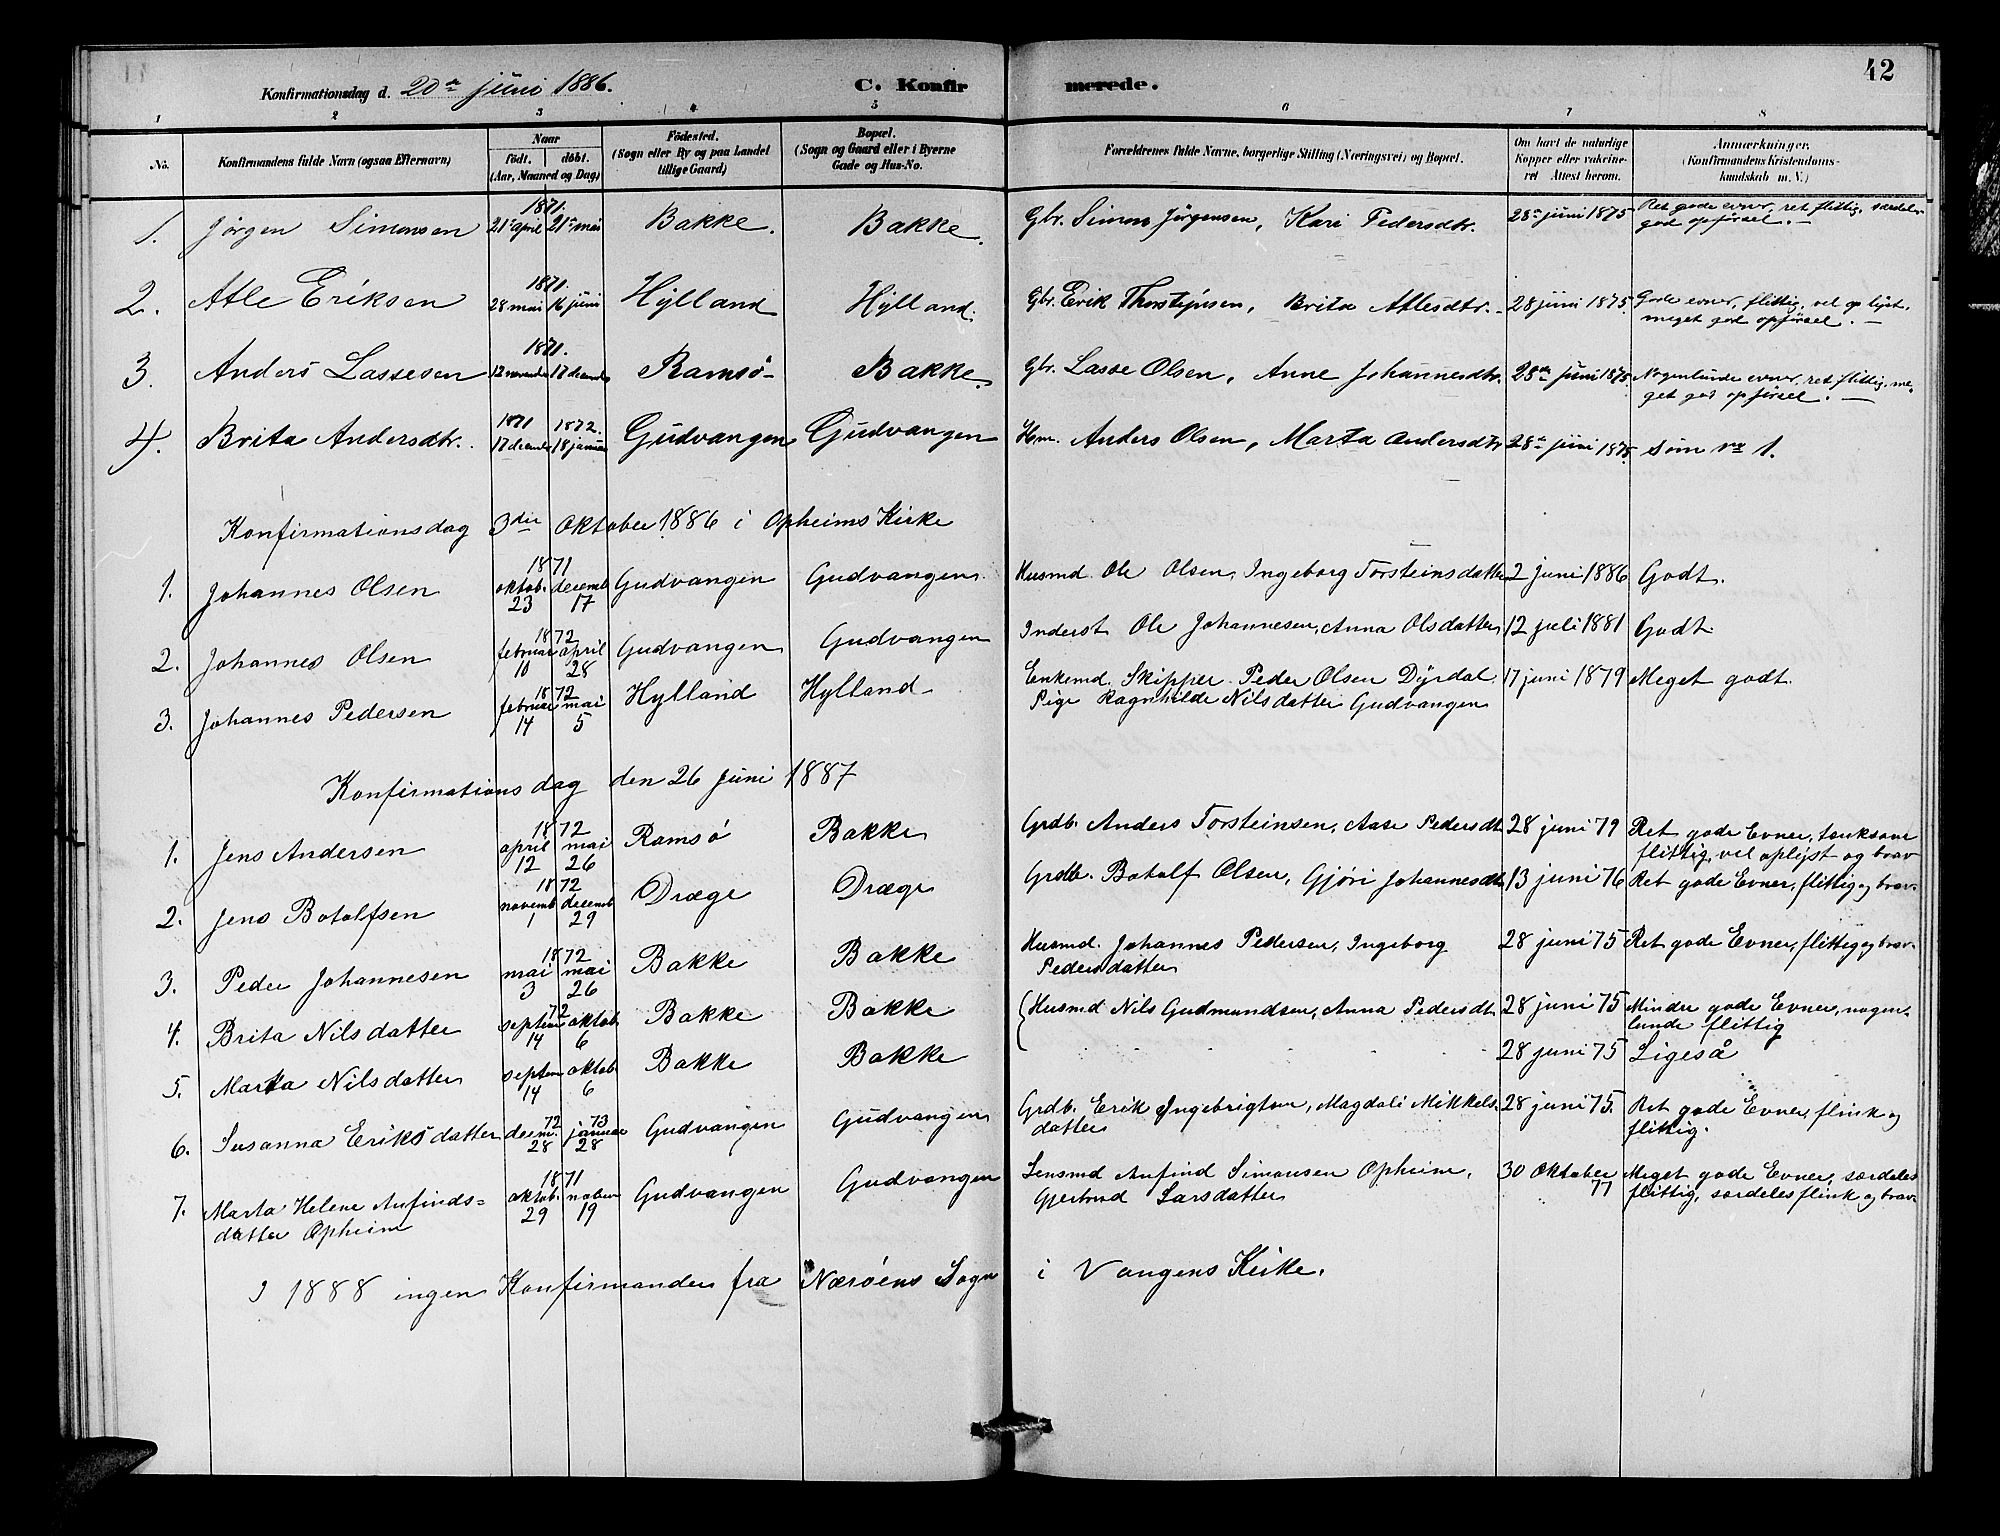 42
Konfirmationsdag d. 20de juni 1886. C. Konfirmerede.
1 2 3 4 5 6 7 8
No. Konfirmandens fulde Navn (ogsaa Efternavn) Naar født. døbt. (Aar, Maaned og Dag) Fødested. (Sogn eller By og paa Landet tillige Gaard) Bopæl. (Sogn og Gaard eller i Byerne Gade og Hus-No. Forældrenes fulde Navne, borgerlige Stilling (Næringsvei) og Bopæl. Om havt de naturlige Kopper eller vakcineret Attest herom. Anmærkninger. (Konfirmandens Kristendomskundskab m. V.)
1. Jørgen Simonsen 1871. 21de april 21de mai Bakke. Bakke. Gbr. Simon Jørgensen, Kari Pedersdtr. 28de juni 1875 Ret gode evner, ret flittig, særdeles
god opførsel. —
2. Atle Eriksen 1871. 28 mai 16 juni Hylland Hylland. Gbr. Erik Thorstejnsen, Brita Atlesdtr. 28 juni 1875 Gode evner, flittig, vel oplyst,
meget god opførsel. —
3. Anders Lassesen 1871. 12 november 17 decembr Ramsø Bakke Gbr. Lasse Olsen, Anne Johannesdtr. 28de juni 1875 Nogenlunde evner, ret flittig, me-
get god opførsel. —
4. Brita Andersdtr. 1871 17 decembr 1872. 18 januar Gudvangen Gudvangen Hm. Anders Olsen, Marta Andersdtr 28de juni 1875 som nr 1.
Konfirmationsdag 3die Oktober 1886 i Opheims Kirke
1. Johannes Olsen 1871 oktob. 23 decemb 17 Gudvangen Gudvangen. Husmd. Ole Olsen, Ingeborg Torsteinsdatter 2 juni 1886 Godt.
2. Johannes Olsen 1872 februar 10 april 28 Gudvangen Gudvangen Inderst Ole Johannesen, Anna Olsdatter 12 juli 1881 Godt.
3. Johannes Pedersen 1872 februar 14 mai 5 Hylland Hylland Enkemd. Skipper Peder Olsen Dyrdal. 17 juni 1879 Meget godt.
Pige Ragnhilde Nilsdatter Gudvangen
Konfirmationsdag den 26 Juni 1887
1. Jens Andersen 1872 april 12 mai 26 Ramsø Bakke Grdb. Anders Torsteinsen, Aase Pedersdt 28 juni 79 Ret gode Evner, tænksom
flittig, vel oplyst og brav
2. Jens Botolfsen 1872 novemb 1 decemb 29 Dræge Dræge Grdb. Botolf Olsen, Gjøri Johannesdt 13 juni 76 Ret gode Evner, flittig og brav
3. Peder Johannesen 1872 mai 3 mai 26 Bakke Bakke Husmd. Johannes Pedersen, Ingeborg 28 juni 75 Ret gode Evner, flittig og brav
Pedersdatter
4. Brita Nilsdatter 72 septem 14 oktob 6 Bakke Bakke Husmd Nils Gudmundsen, Anna Pedersdt. 28 juni 75 Mindre gode Evner, nogen-
lunde flittig
5. Marta Nilsdatter septem 14 oktob 6 Bakke Bakke 28 juni 75 Ligeså
6. Susanna Eriksdatter 72 decem. 28 73 januar 28 Gudvangen Gudvangen Grdb. Erik Ingebrigtsen, Magdali Mikkels- 28 juni 75. Ret gode Evner, flink og
datter flittig.
7. Marta Helene Anfinds- 1871 oktob. 29 november 19 Gudvangen Gudvangen Lensmd Anfind Simonsen Opheim, 30 Oktober 77 Meget gode Evner, særdeles
datter Opheim Gjertrud Larsdatter flittig, særdeles flink og brav
I 1888 ingen Konfirmander fra Nærøens Sogn i Vangens Kirke.